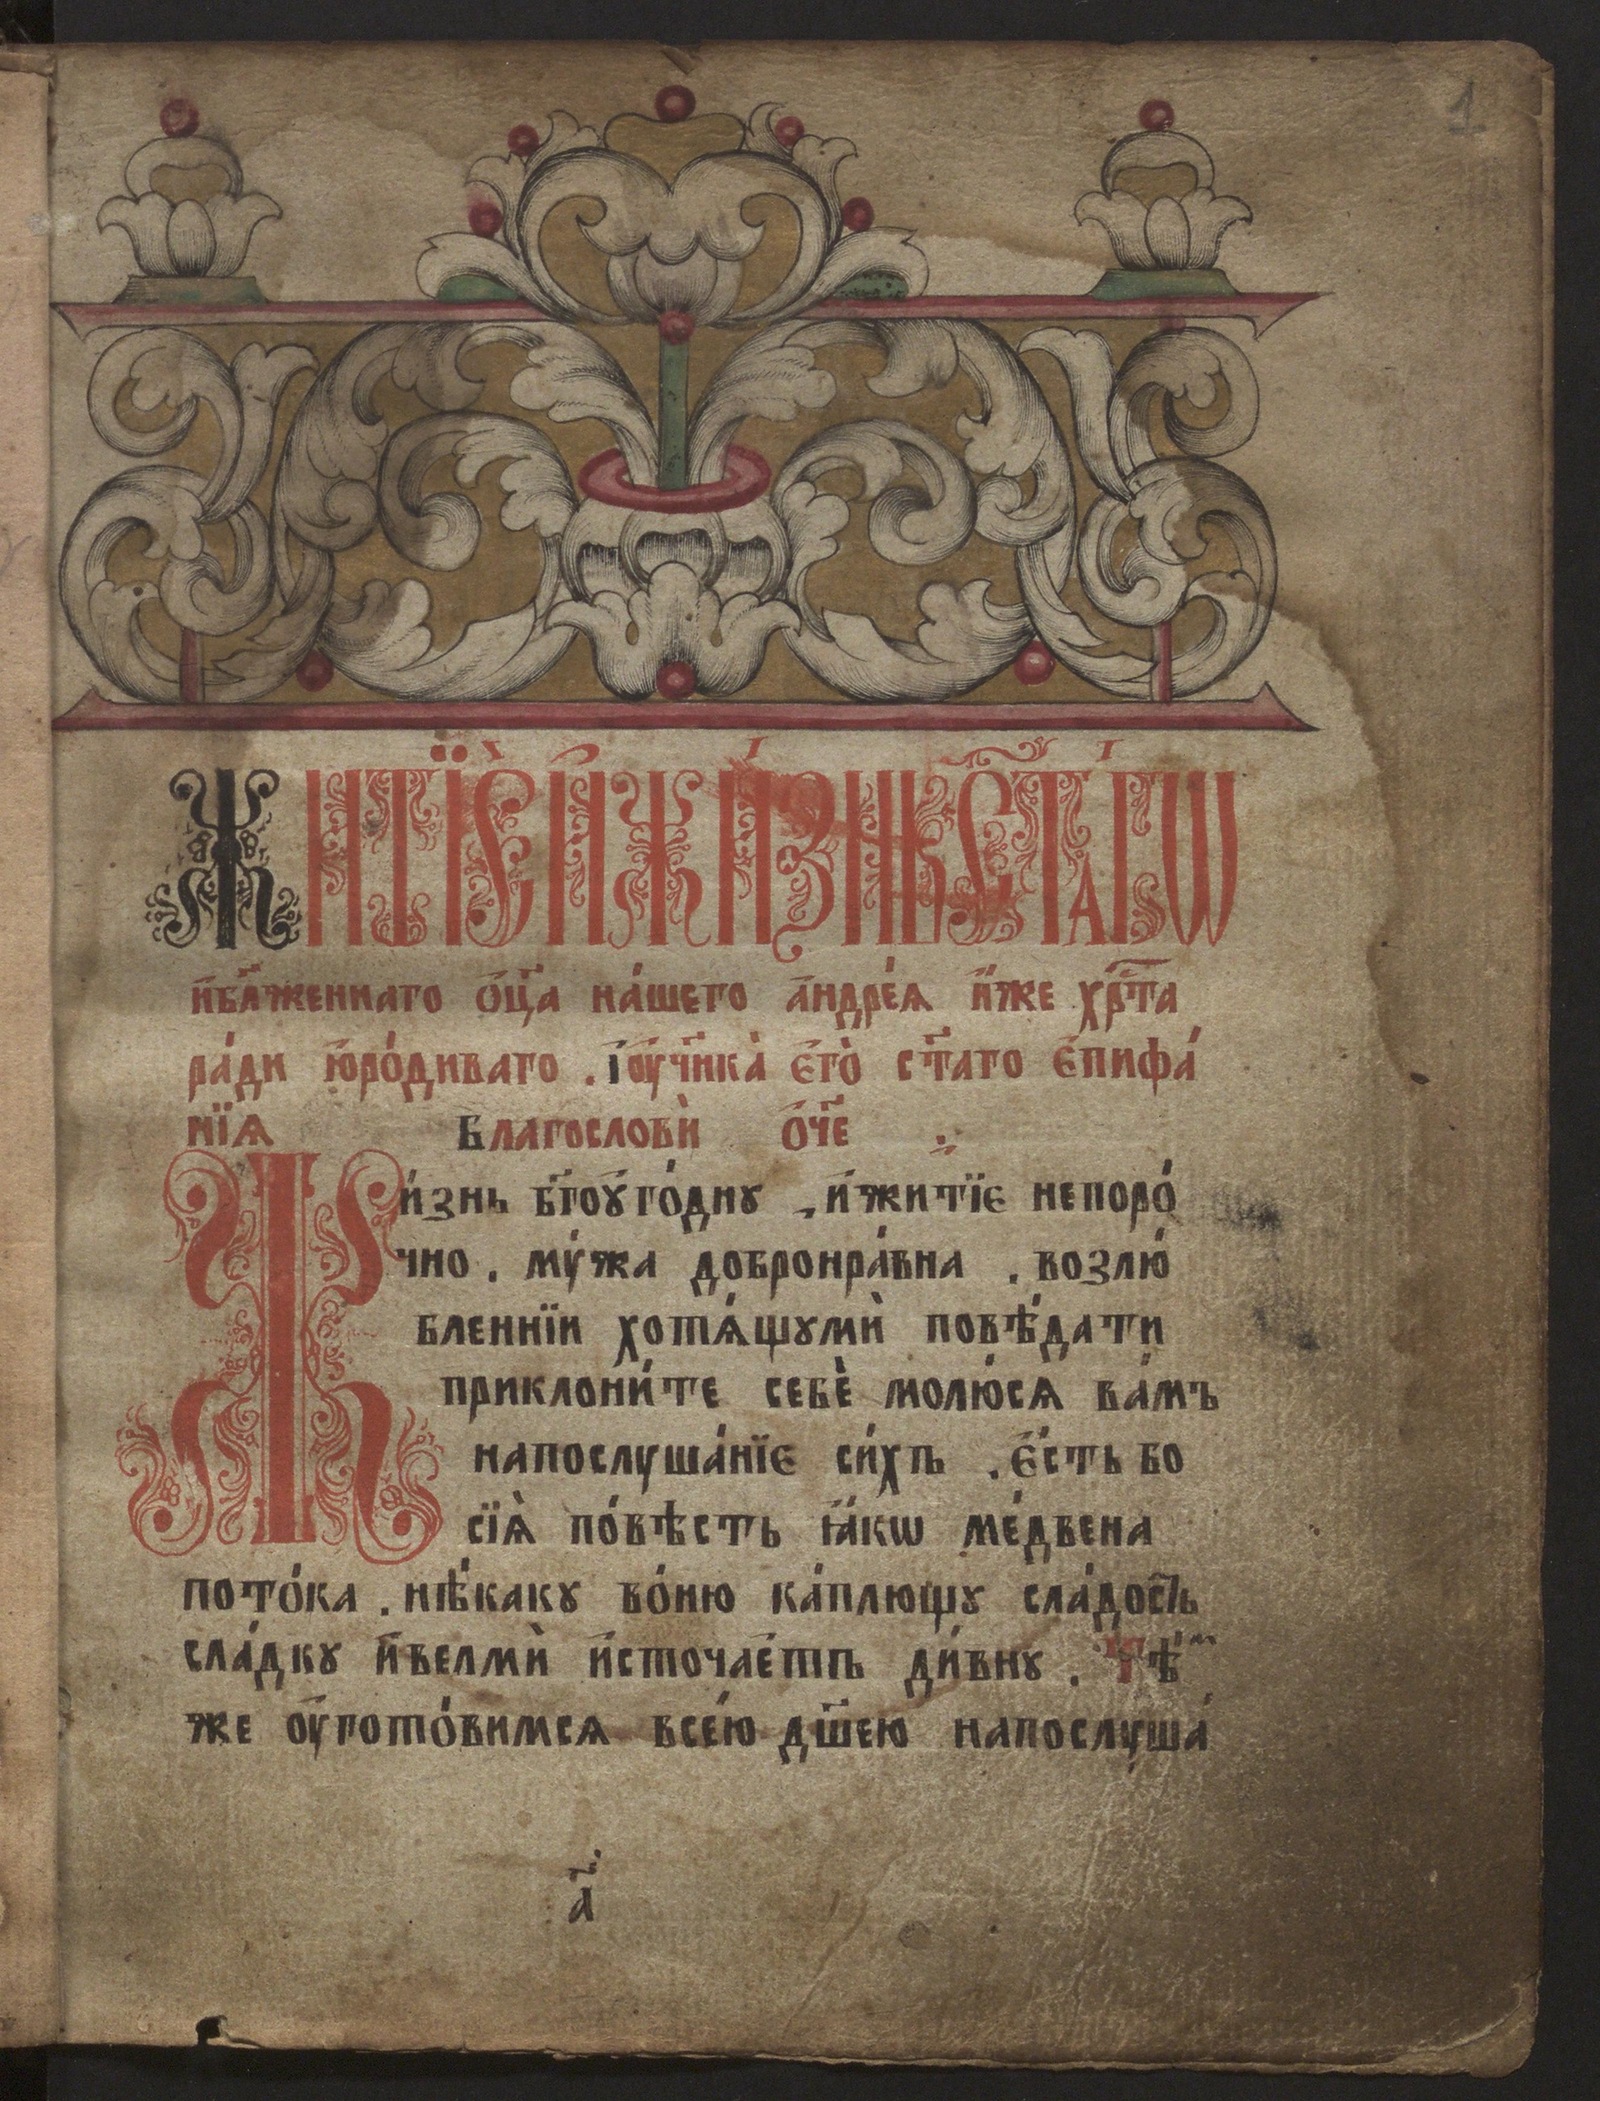 1
Житїѐ и҆ жи́знь ст҃а́гѡ
и҆бл҃же́ннаго ѻ҆ц҃а на́шего а҆ндре́ѧ и҆́же хрⷭ҇та̀
ра́ди ю҆ро́диваго . і҆оу҆чн҃ика̀ є҆го̀ ст҃аго є҆пифа́
нїѧ Благословѝ ѻ҆́ч҃е ⁘
Жи́знь бг҃оуго́днꙋ , и҆житїѐ непоро́
чно . мꙋ́жа добронра́вна . возлю́
бленнїи хотѧ́щꙋмѝ повѣ́дати
приклони́те себѐ молю́сѧ ва́мъ
напослуша́нїе си́хъ . є҆́сть бо
сїѧ̀ по́вѣсть ꙗ҆́кѡ ме́двена
пото́ка . нѣ́какꙋ во́ню ка́плющꙋ сла́дость
сла́дкꙋ и҆велмѝ и҆сточа́етъ ди́внꙋ . Тѣⷨ
же оу҆гото́вимсѧ все́ю дш҃ею напослуша́
а҃.